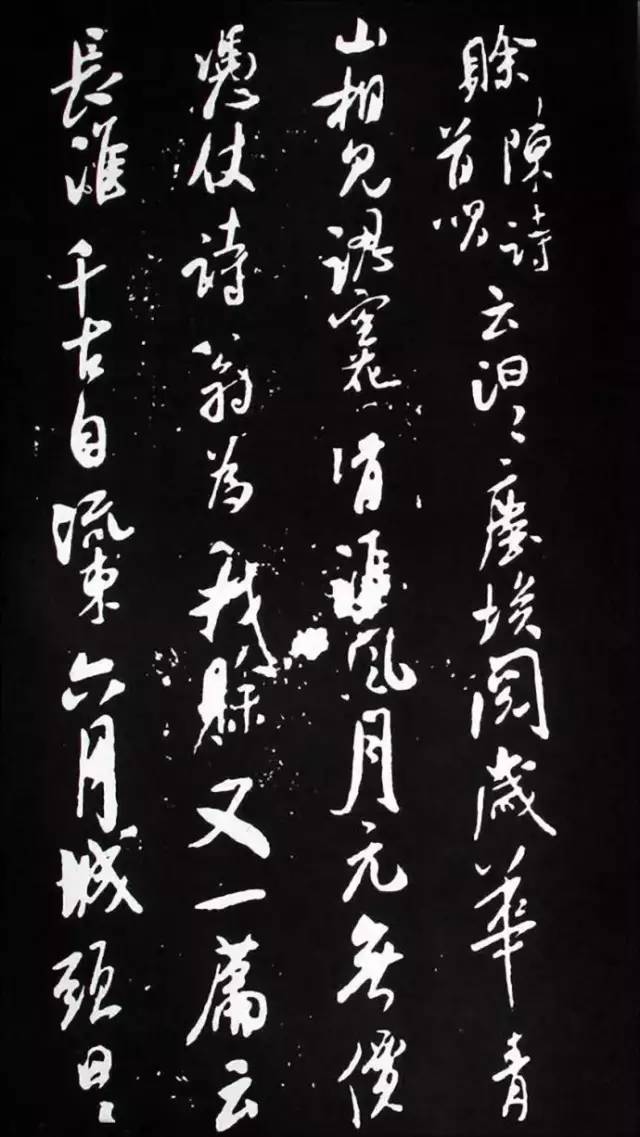 賒陳詩首唱云汩〻塵埃閱歲華青
山相見空花清淮風月元無價
憑仗詩翁為我賒又一篇云
長淮千古自流東六月城頭日〻